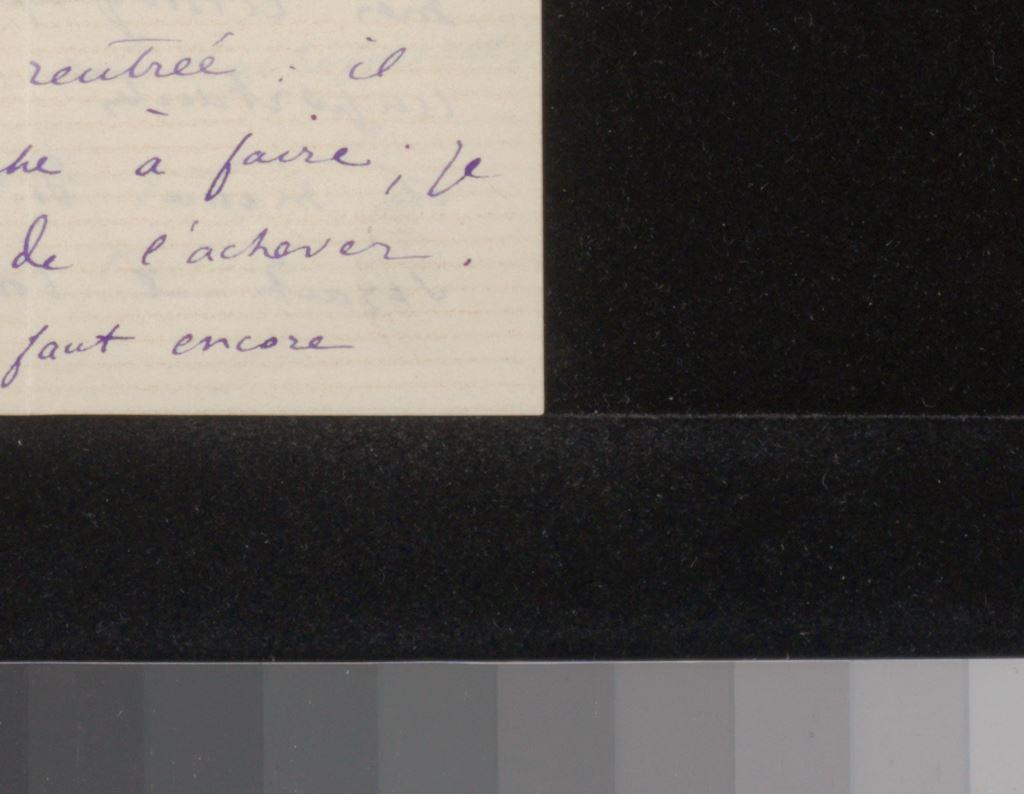 rentrée : il
he à faire ; je
de l'achever.
faut encore